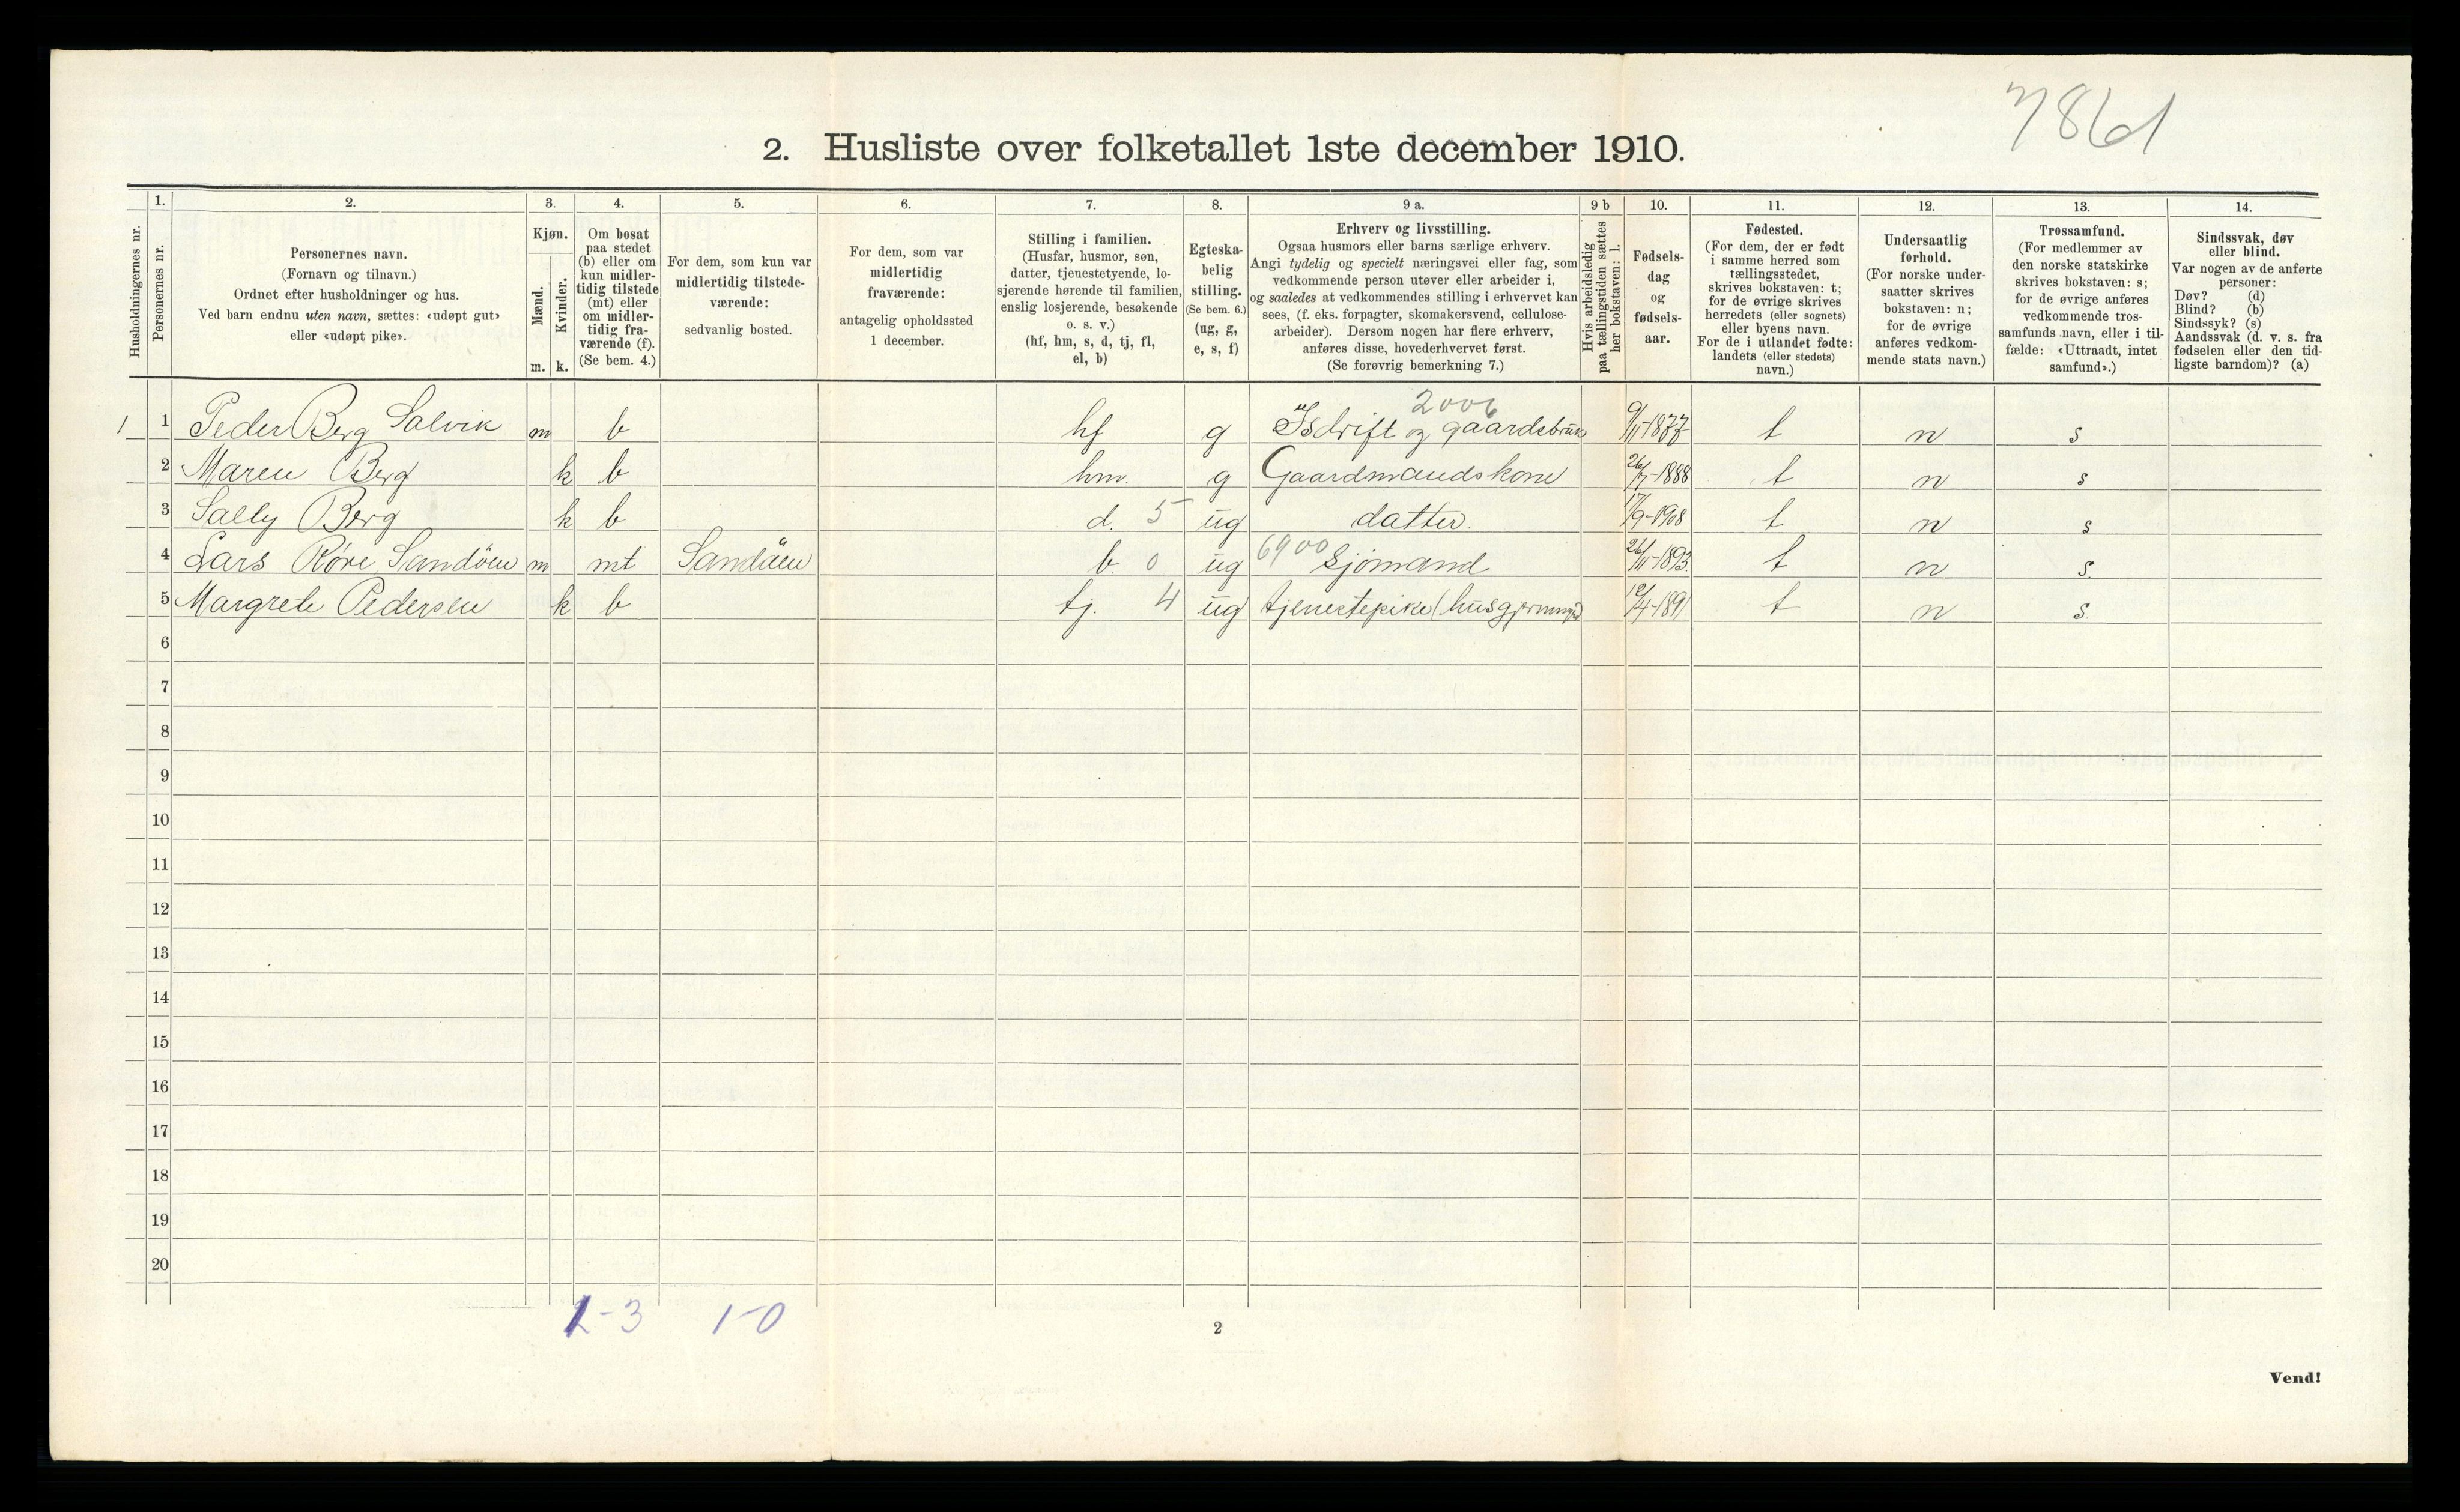 7861
2. Husliste over folketallet 1ste december 1910.
Husholdningernes nr.
1.
Personernes nr.
2.
Personernes navn.
(Fornavn og tilnavn.)
Ordnet efter husholdninger og hus.
Ved barn endnu uten navn, sættes: «udøpt gut»
eller «udøpt pike».
3.
Kjøn.
Mænd.
Kvinder.
m. k.
4.
Om bosat
paa stedet
(b) eller om
kun midler-
tidig tilstede
(mt) eller
om midler-
tidig fra-
værende (f).
(Se bem. 4.)
5.
For dem, som kun var
midlertidig tilstede-
værende:
sedvanlig bosted.
6.
For dem, som var
midlertidig
fraværende:
antagelig opholdssted
1 december.
7.
Stilling i familien.
(Husfar, husmor, søn,
datter, tjenestetyende, lo-
sjerende hørende til familien,
enslig losjerende, besøkende
o. s. v.)
(hf, hm, s, d, tj, fl,
el, b)
8.
Egteska-
belig
stilling.
(Se bem. 6.)
(ug, g,
e, s, f)
9 a.
Erhverv og livsstilling.
Ogsaa husmors eller barns særlige erhverv.
Angi tydelig og specielt næringsvei eller fag, som
vedkommende person utøver eller arbeider i,
og saaledes at vedkommendes stilling i erhvervet kan
sees, (f. eks. forpagter, skomakersvend, cellulose-
arbeider). Dersom nogen har flere erhverv,
anføres disse, hovederhvervet først.
(Se forøvrig bemerkning 7.)
9 b
Hvis arbeidsledig
paa tællingstiden sættes
her bokstaven: l.
10.
Fødsels-
dag
og
fødsels-
aar.
11.
Fødested.
(For dem, der er født
i samme herred som
tællingsstedet,
skrives bokstaven: t;
for de øvrige skrives
herredets (eller sognets)
eller byens navn.
For de i utlandet fødte:
landets (eller stedets)
navn.)
12.
Undersaatlig
forhold.
(For norske under-
saatter skrives
bokstaven: n;
for de øvrige
anføres vedkom-
mende stats navn.)
13.
Trossamfund.
(For medlemmer av
den norske statskirke
skrives bokstaven: s;
for de øvrige anføres
vedkommende tros-
samfunds navn, eller i til-
fælde: «Uttraadt, intet
samfund».)
14.
Sindssvak, døv
eller blind.
Var nogen av de anførte
personer:
Døv? (d)
Blind? (b)
Sindssyk? (s)
Aandssvak (d. v. s. fra
fødselen eller den tid-
ligste barndom)? (a)
2006
1 1 Peder Berg Salvik m b hf g Isdrift og gaardsbruk 9/11-1877 t n s
2 Maren Berg k b hm. g Gaardmandskone 1888 t n s
3 Sally Berg k b d. 5 ug datter. 17/9-1908 t n s
4 Lars Røre Sandöen m mt Sandöen b. 0 ug 6900 Sjömand 26/11-1893 t n s.
5 Margrete Pedersen k b tj. 4 ug tjenestepike (husgjerning) 12/4-1891 t n s.
6
7
8
9
10
11
12
13
14
15
16
17
18
19
20
1-3 1-0
2
Vend!